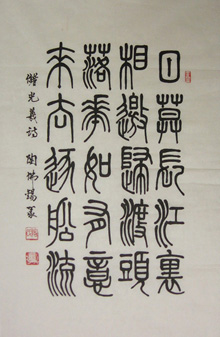 日莫長江裏
相邀歸渡頭
落華如有意
來去逐船流
儲光羲詩 陶佛錫篆